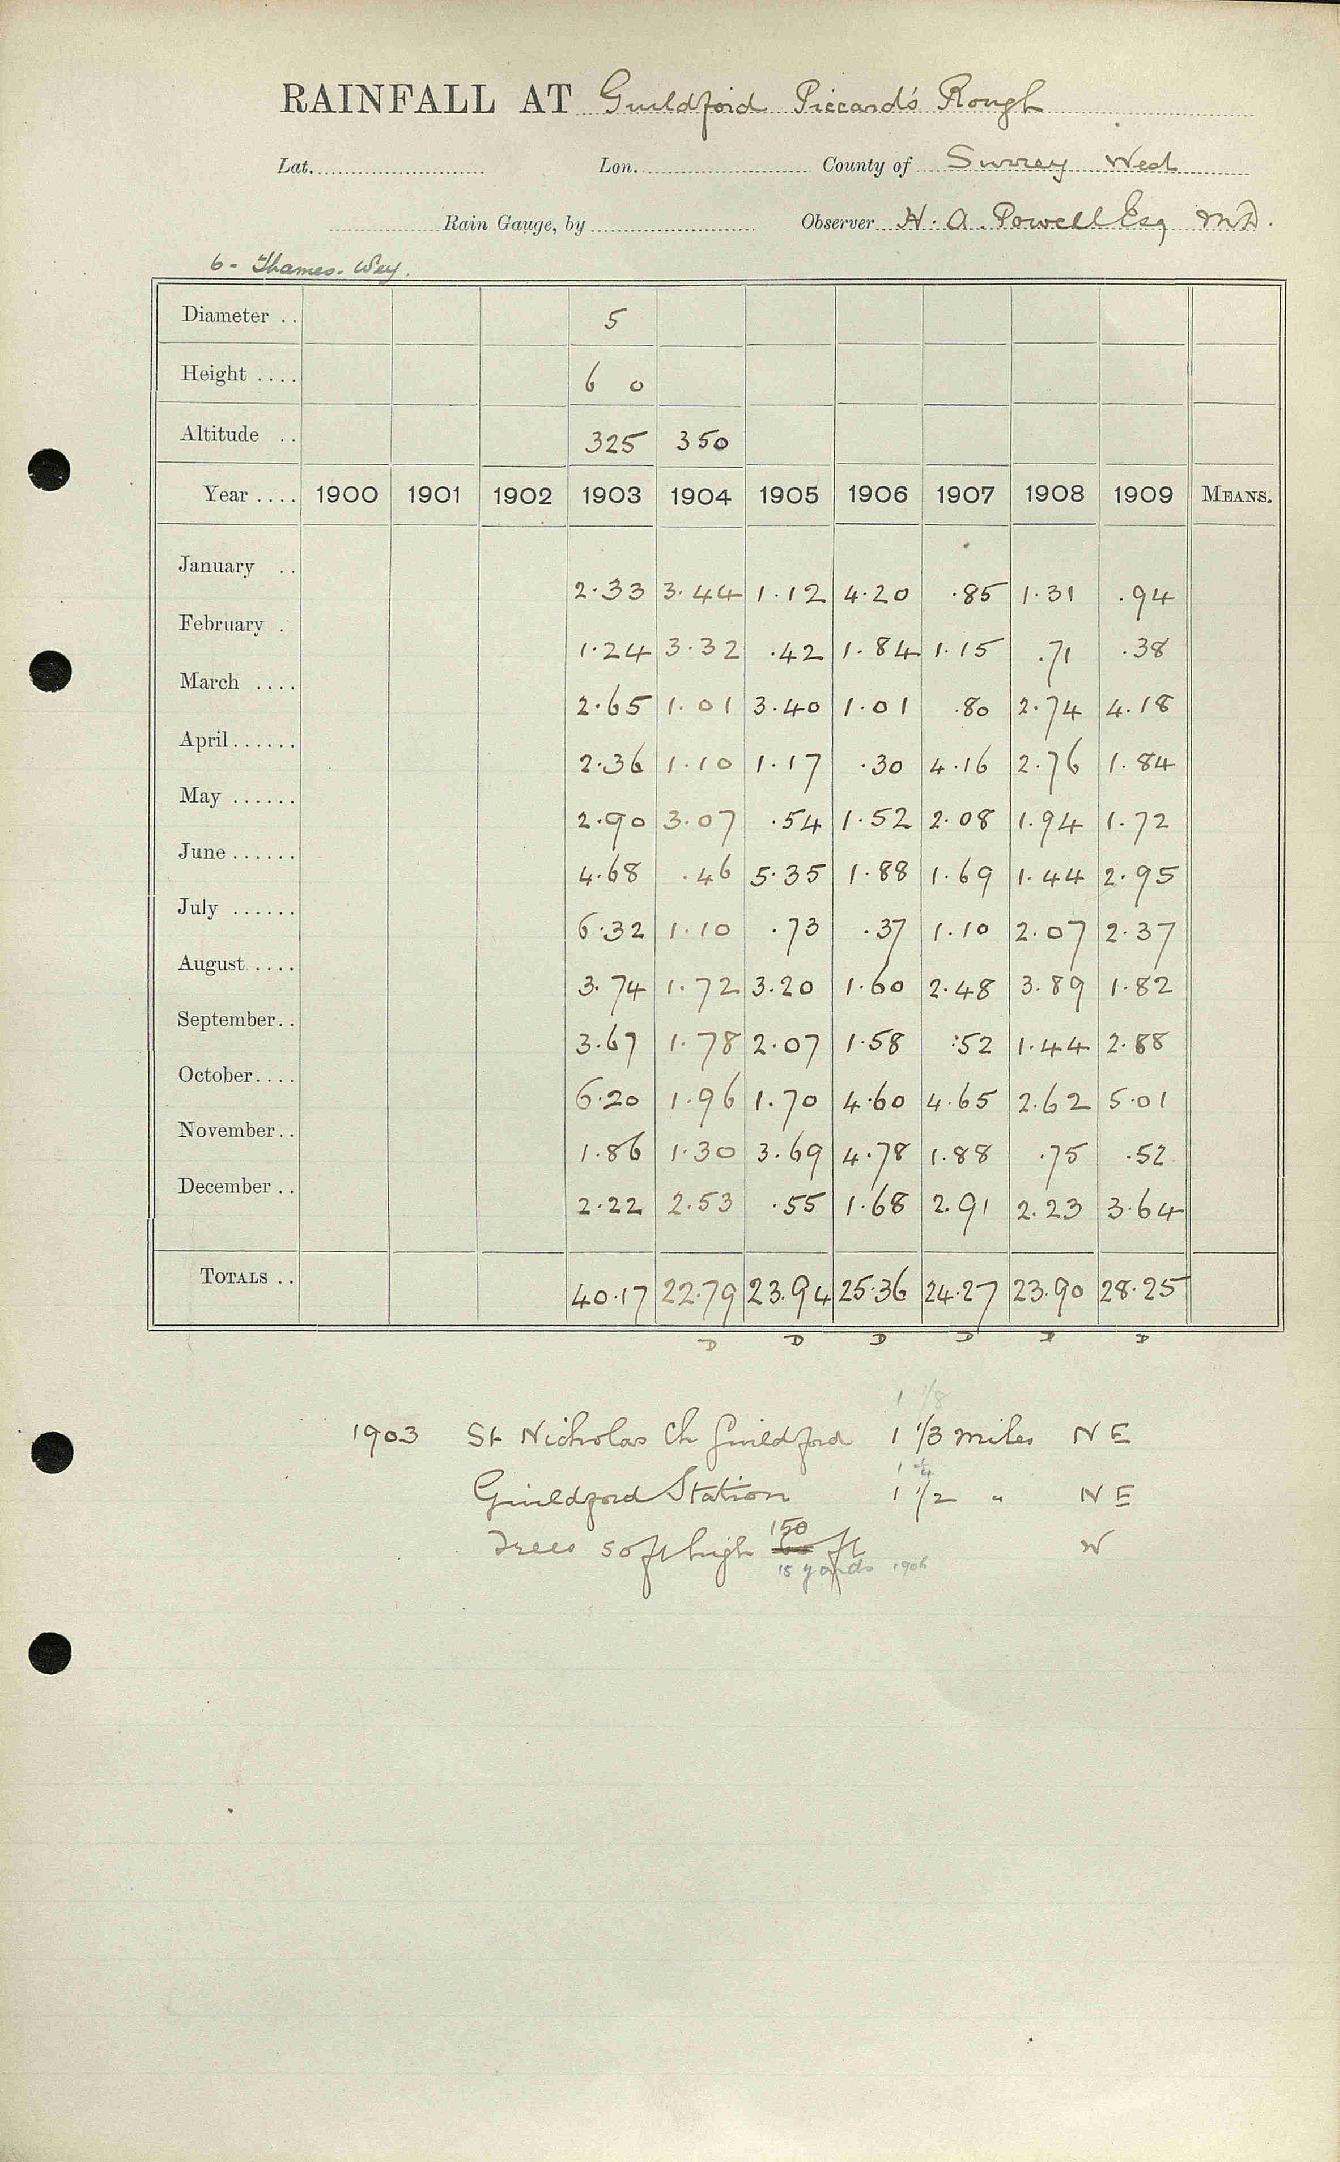 RAINFALL AT Guildford Piccard's Rough
Lat. Lon. County of Surrey West
Rain Gauge, by Observer H. A. Powell Esq M.D.
6 - Thames. Wey.
Diameter .. 5
Height .... 6 0
Altitude .. 325 350
Year .... 1900 1901 1902 1903 1904 1905 1906 1907 1908 1909 MEANS.
January .. 2.33 3.44 1.12 4.20 .85 1.31 .94
February . 1.24 3.32 .42 1.84 1.15 .71 .38
March .... 2.65 1.01 3.40 1.01 .80 2.74 4.18
April...... 2.36 1.10 1.17 .30 4.16 2.76 1.84
May ...... 2.90 3.07 .54 1.52 2.08 1.94 1.72
June...... 4.68 .46 5.35 1.88 1.69 1.44 2.95
July ...... 6.32 1.10 .73 .37 1.10 2.07 2.37
August..... 3.74 1.72 3.20 1.60 2.48 3.89 1.82
September.. 3.67 1.78 2.07 1.58 .52 1.44 2.88
October.... 6.20 1.96 1.70 4.60 4.65 2.62 5.01
November.. 1.86 1.30 3.69 4.78 1.88 .75 .52
December .. 2.22 2.53 .55 1.68 2.91 2.23 3.64
TOTALS .. 40.17 22.79 23.94 25.36 24.27 23.90 28.25
D D D D D D
1 1/8
1903 St Nicholas Ch Guildford 1 1/3 miles N E
1 1/4
Guildford Station 1 1/2 " N E
150
Trees 50 ft high 60 ft W
15 yards 1906